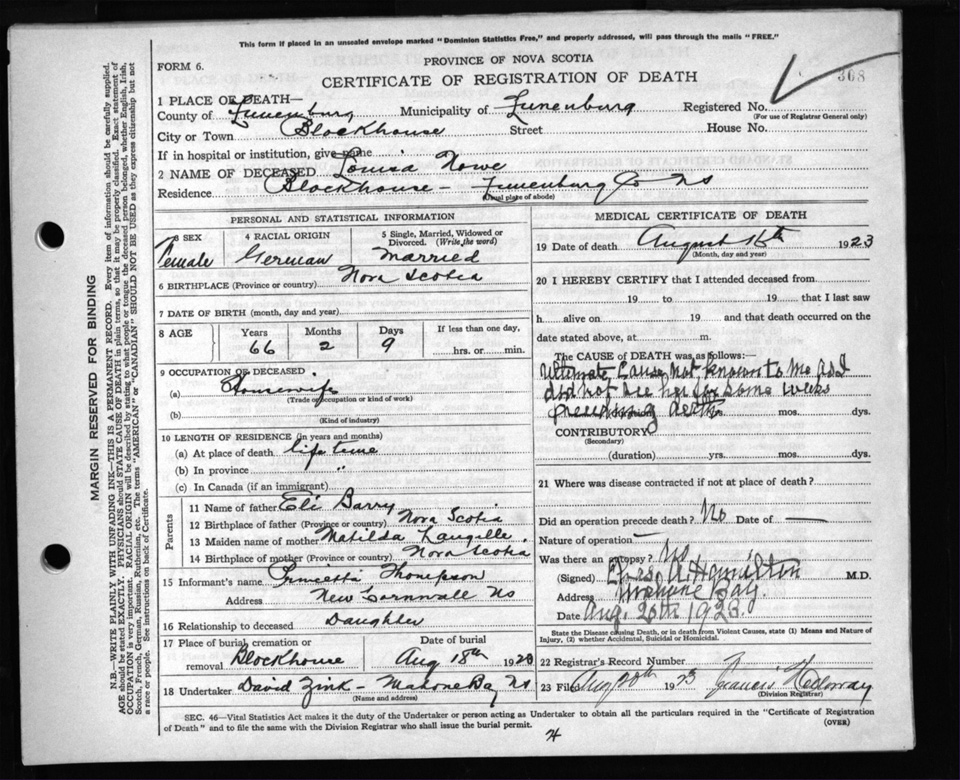 This form if placed in an unsealed envelope marked "Dominion Statistics Free," and properly addressed, will pass through the mails "FREE."
FORM 6.
PROVINCE OF NOVA SCOTIA
CERTIFICATE OF REGISTRATION OF DEATH
308
1 PLACE OF DEATH—
County of Lunenburg Municipality of Lunenburg Registered No.
(For use of Registrar General only)
City or Town Blockhouse Street House No.
If in hospital or institution, give name
2 NAME OF DECEASED Louisa Nowe
Residence Blockhouse - Lunenburg Co NS
(Usual place of abode)
PERSONAL AND STATISTICAL INFORMATION
3 SEX 4 RACIAL ORIGIN 5 Single, Married, Widowed or Divorced. (Write the word)
Female German Married
6 BIRTHPLACE (Province or country) Nova Scotia
7 DATE OF BIRTH (month, day and year)
8 AGE Years Months Days If less than one day,
66 2 9 hrs. or min.
9 OCCUPATION OF DECEASED
(a) Housewife
(Trade occupation or kind of work)
(b)
(Kind of industry)
10 LENGTH OF RESIDENCE (in years and months)
(a) At place of death life time
(b) In province "
(c) In Canada (if an immigrant)
Parents
11 Name of father Eli Barry
12 Birthplace of father (Province or country) Nova Scotia
13 Maiden name of mother Matilda Langille
14 Birthplace of mother (Province or country) Nova Scotia
15 Informant's name Thompson
Address New Cornwall NS
16 Relationship to deceased Daughter
17 Place of burial, cremation or removal Blockhouse Date of burial Aug 18th 1923
18 Undertaker David Zink - Mahone Bay NS
(Name and address)
MEDICAL CERTIFICATE OF DEATH
19 Date of death August 16th 1923
(Month, day and year)
20 I HEREBY CERTIFY that I attended deceased from
19 to 19 that I last saw
h alive on 19 and that death occurred on the
date stated above, at m.
The CAUSE OF DEATH was as follows:—
Ultimate Cause not known to me
did not see her for some weeks
preceding death mos. dys.
CONTRIBUTORY
(Secondary)
(duration) yrs. mos. dys.
21 Where was disease contracted if not at place of death?
Did an operation precede death? No Date of —
Nature of operation —
Was there an autopsy? No
(Signed) Hamilton M.D.
Address Mahone Bay
Date Aug. 20th 1923
State the Disease causing Death, or in death from Violent Causes, state (1) Means and Nature of Injury, (2) whether Accidental, Suicidal or Homicidal.
22 Registrar's Record Number
23 Filed Aug 20th 1923 Francis
(Division Registrar)
SEC. 46—Vital Statistics Act makes it the duty of the Undertaker or person acting as Undertaker to obtain all the particulars required in the "Certificate of Registration of Death" and to file the same with the Division Registrar who shall issue the burial permit. (OVER)
MARGIN RESERVED FOR BINDING
N.B.—WRITE PLAINLY WITH UNFADING INK—THIS IS A PERMANENT RECORD. Every item of information should be carefully supplied.
AGE should be stated EXACTLY. PHYSICIANS should STATE CAUSE OF DEATH in plain terms, so that it may be properly classified. Exact statement of
OCCUPATION is very important. RACIAL ORIGIN will be described by stating to what people or tongue the deceased person belonged, whether English, Irish,
Scotch, French, German, Russian, Ruthenian, etc. The terms "AMERICAN" or "CANADIAN" SHOULD NOT BE USED as they express citizenship but not
a race or people. See instructions on back of Certificate.